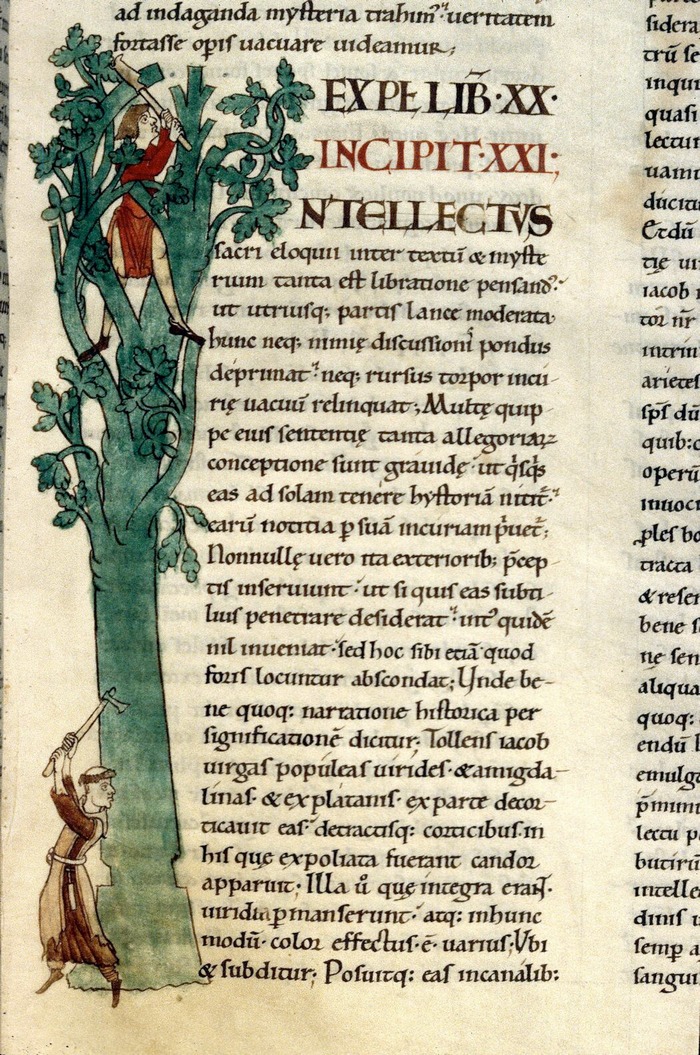 ad indaganda mysteria trahim᷒· veritatem
fortasse operis vacuare videamur;
EXPL LIB̄·XX·
INCIPIT·XXI;
NTELLECTVS
sacri eloquii inter textū & myste
rium tanta est libratione pensand᷒·
ut utriusq; partis lance moderata
hunc neq; nimię discussionis pondus
deprimat· neq; rursus torpor incu
rię vacuū relinquat; Multę quip
pe eius sententię tanta allegoriarꝝ
conceptione sunt gravidę· ut q̇sq̇s
eas ad solam tenere hystoriā nitit᷒·
earū notitia ꝑ suā incuriam p̄vet᷒;
Nonnullę vero ita exteriorib; p̄cep
tis inserviunt· ut si quis eas subti
lius penetrare desiderat· int᷒ quidē
nil inveniat· sed hoc sibi etiā quod
foris locuntur abscondat; Unde be
ne quoq: narratione historica per
significationē dicitur; Tollens iacob
virgas populeas virides· & amigda
linas· & ex platanis· ex parte decor
ticavit eas· detractisq: corticibus· in
his que expoliata fuerant candor
apparuit· Illa ů que integra erant·
viridia ꝑmanserunt· atq: in hunc
modū· color effectus· ē· varius; Vbi
& subditur; Posuitq: eas in canalib:
sidera
trū se
inqui
quasi
lectur
vami
ducitu
Et dū
tię vi
iacob
tor nr̄
intrin
arietes
sps̄ dū
quib:
operū
invoc
ples bo
tracta
& refer
bene s
nę sen
aliqua
quoq:
endū
emulg
p̄mini
lectu p
butirū
intelle
dinis
semp̲ a
sangui